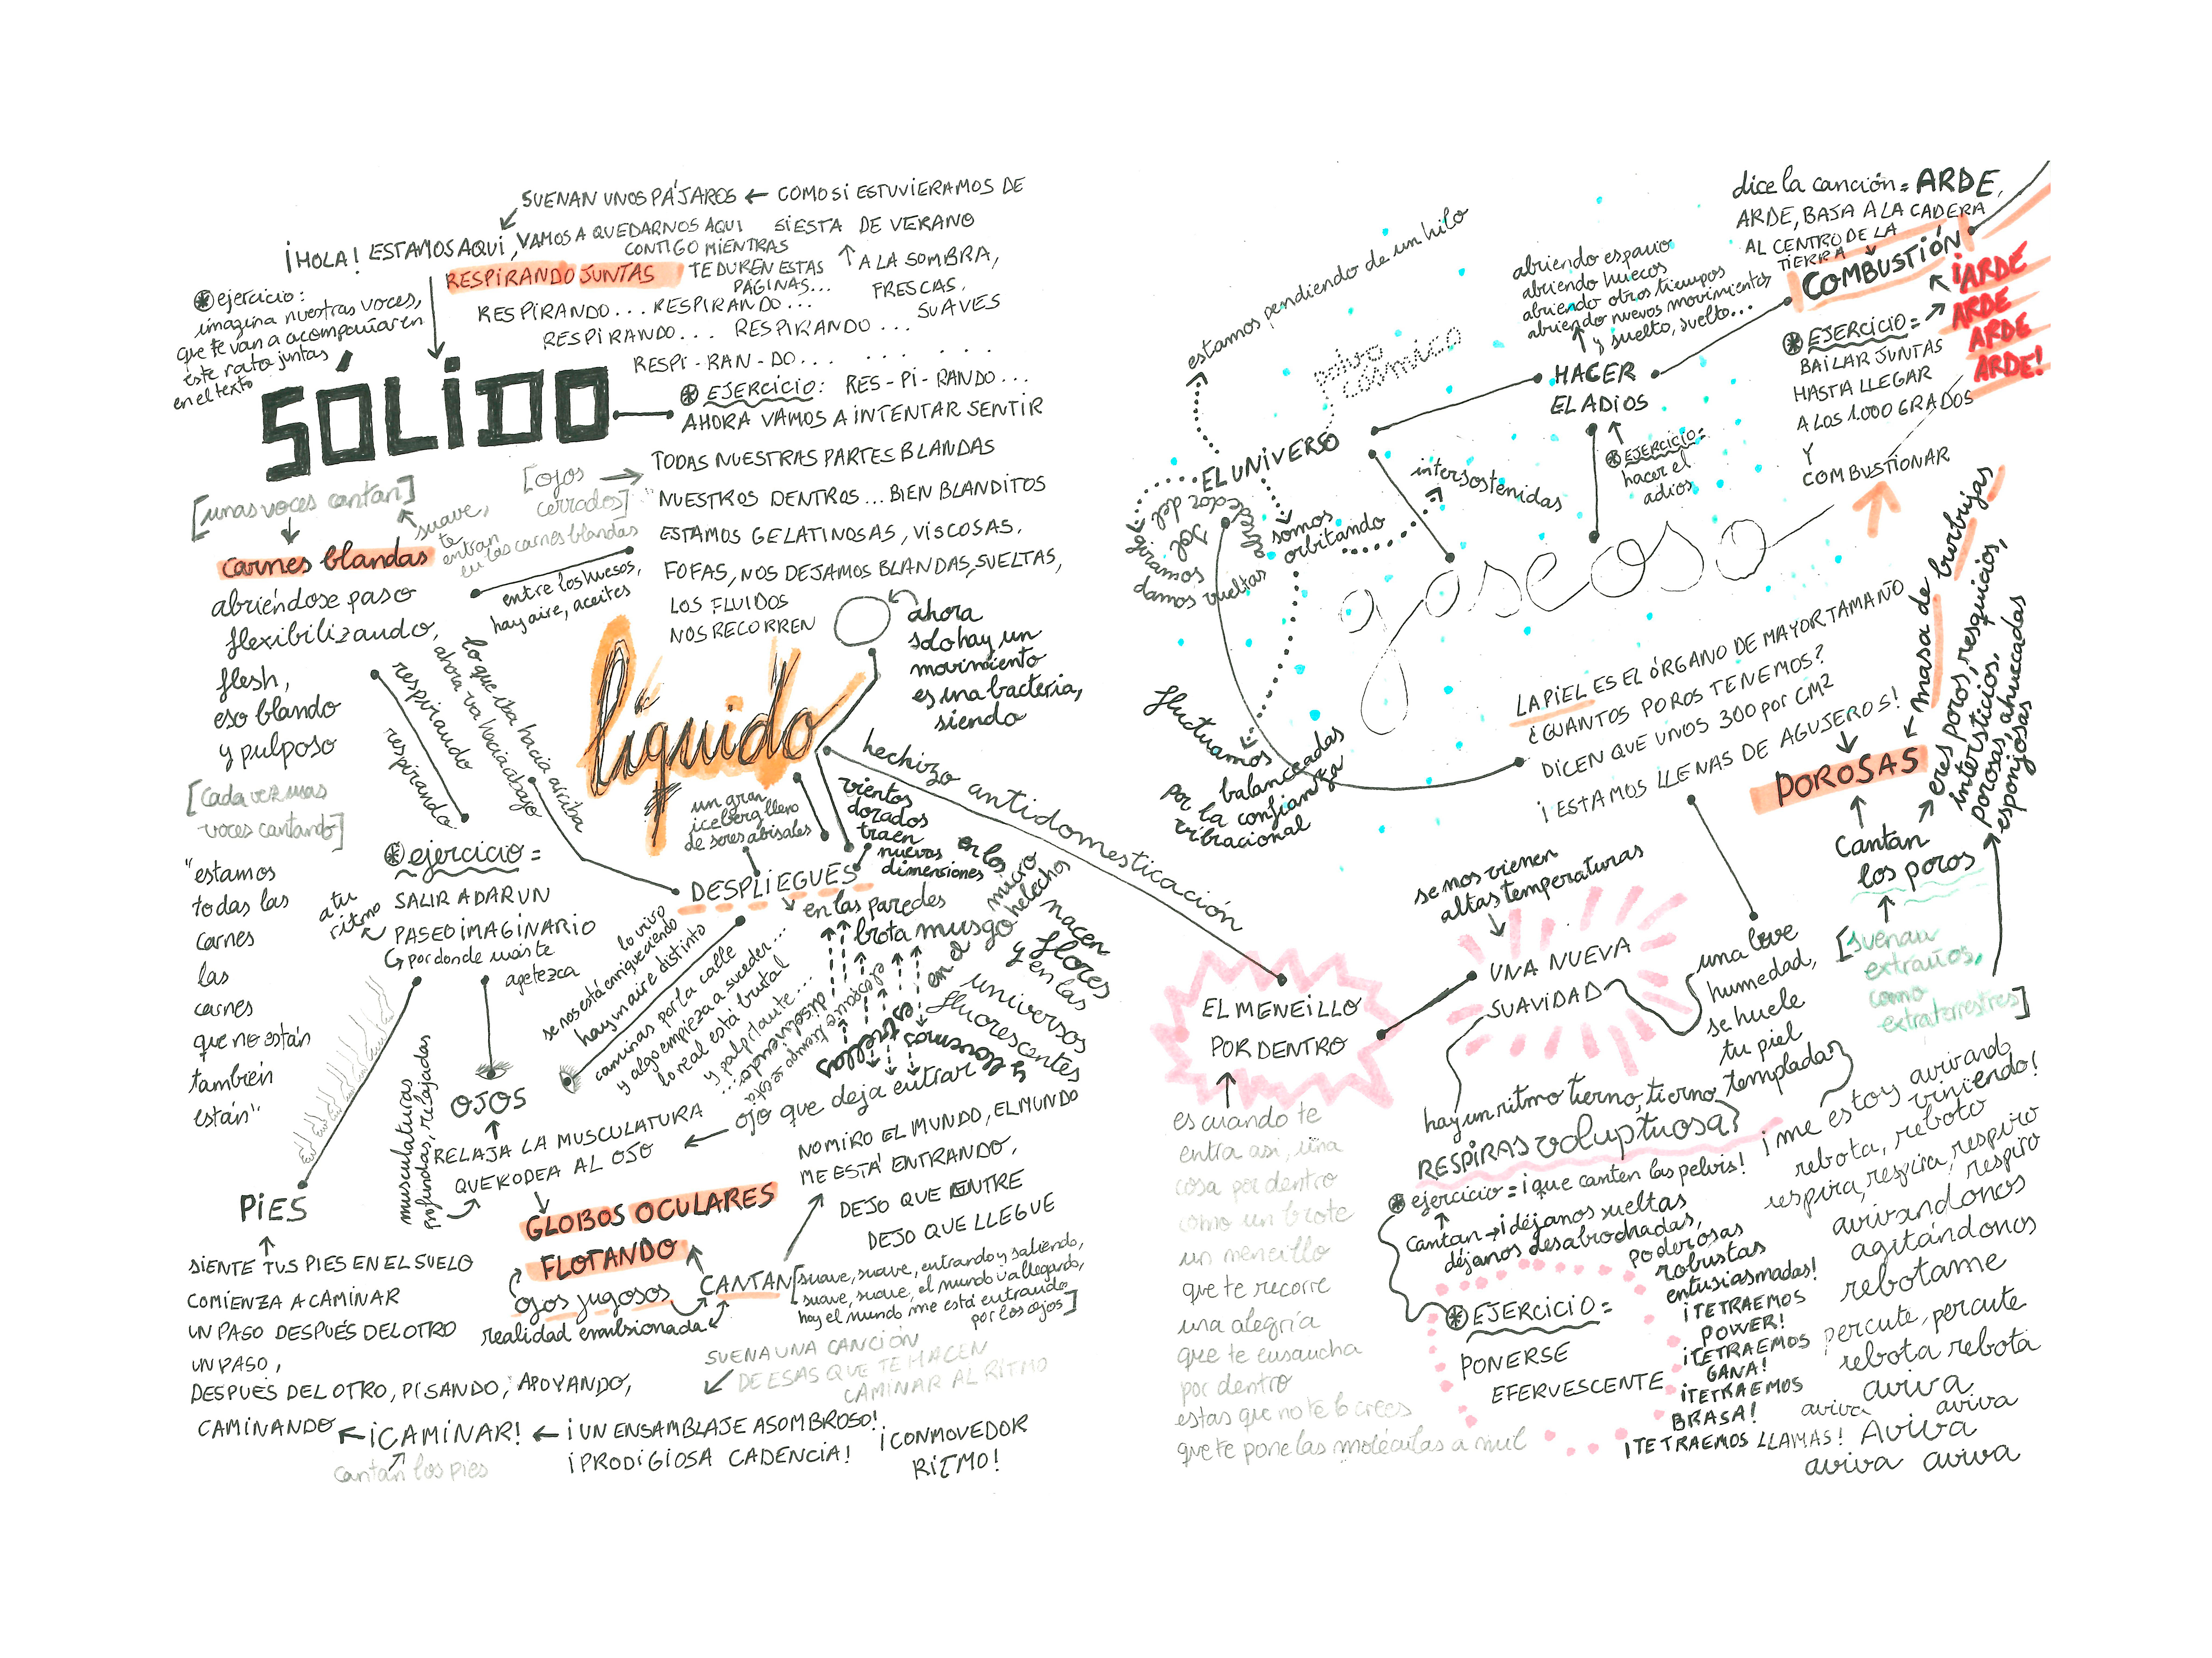 SUENAN UNOS PÁJAROS ← COMO SI ESTUVIERAMOS DE
SIESTA DE VERANO
↑ A LA SOMBRA,
FRESCAS,
SUAVES
¡HOLA! ESTAMOS AQUÍ, VAMOS A QUEDARNOS AQUI
CONTIGO MIENTRAS
TE DUREN ESTAS
PÁGINAS...
RESPIRANDO JUNTAS
RESPIRANDO... RESPIRANDO...
RESPIRANDO... RESPIRANDO...
RESPI-RAN-DO... . . . . . .
⊛ ejercicio:
imagina nuestras voces,
que te van a acompañar en
este rato juntas
en el texto
SÓLIDO
⊛ EJERCICIO: RES-PI-RANDO...
AHORA VAMOS A INTENTAR SENTIR
TODAS NUESTRAS PARTES BLANDAS
[ojos
cerrados]
"NUESTROS DENTROS... BIEN BLANDITOS
ESTAMOS GELATINOSAS, VISCOSAS,
FOFAS, NOS DEJAMOS BLANDAS, SUELTAS,
LOS FLUIDOS
NOS RECORREN
[unas voces cantan]
suave,
te
entran
en las carnes blandas
carnes blandas
abriéndose paso
flexibilizando,
flesh,
eso blando
y pulposo
entre los huesos,
hay aire, aceites
[cada vez mas
voces cantando]
"estamos
todas las
carnes
las
carnes
que no están
también
están"
respirando
respirando
lo que iba hacia arriba
ahora va hacia abajo
líquido
ahora
solo hay un
movimiento
es una bacteria,
siendo
hechizo antidomesticación
un gran
iceberg lleno
de seres abisales
vientos
dorados
traen
nuevas
dimensiones
DESPLIEGUES
en las paredes
brota musgo
en los
micro
helechos
nacen
flores
y en las
universos
fluorescentes
en el
lo vivo
se nos está enriqueciendo
hay un aire distinto
caminas por la calle
y algo empieza a suceder...
lo real está brutal
y palpitante...
disolviendo...
y devenimos
estrellas
ojo que deja entrar
⊛ ejercicio=
SALIR A DAR UN
PASEO IMAGINARIO
a tu
ritmo
por donde más te
apetezca
OJOS
RELAJA LA MUSCULATURA
QUE RODEA AL OJO
musculaturas
profundas, relajadas
GLOBOS OCULARES
FLOTANDO
ojos jugosos
realidad emulsionada
CANTAN
[suave, suave, entrando y saliendo,
suave, suave, el mundo va llegando,
hoy el mundo me está entrando
por los ojos]
NO MIRO EL MUNDO, EL MUNDO
ME ESTÁ ENTRANDO,
DEJO QUE ENTRE
DEJO QUE LLEGUE
SUENA UNA CANCIÓN
DE ESAS QUE TE HACEN
CAMINAR AL RITMO
PIES
SIENTE TUS PIES EN EL SUELO
COMIENZA A CAMINAR
UN PASO DESPUÉS DEL OTRO
UN PASO,
DESPUÉS DEL OTRO, PISANDO, APOYANDO,
CAMINANDO ← ¡CAMINAR! ← ¡UN ENSAMBLAJE ASOMBROSO!
cantan los pies
¡PRODIGIOSA CADENCIA!
¡CONMOVEDOR
RITMO!
estamos pendiendo de un hilo
polvo
cósmico
EL UNIVERSO
alrededor del
sol
giramos
damos vueltas
somos
orbitando
intersostenidas
fluctuamos
balanceadas
por la confianza
vibracional
abriendo espacio
abriendo huecos
abriendo otros tiempos
abriendo nuevos movimientos
y suelto, suelto...
HACER
EL ADIOS
⊛ EJERCICIO=
hacer el
adios
gaseoso
dice la canción= ARDE,
ARDE, BAJA A LA CADERA
AL CENTRO DE LA
TIERRA
COMBUSTIÓN
¡ARDE
ARDE
ARDE
ARDE!
⊛ EJERCICIO=
BAILAR JUNTAS
HASTA LLEGAR
A LOS 1.000 GRADOS
Y
COMBUSTIONAR
LA PIEL ES EL ÓRGANO DE MAYOR TAMAÑO
¿CUANTOS POROS TENEMOS?
DICEN QUE UNOS 300 por CM2
¡ESTAMOS LLENAS DE AGUJEROS!
POROSAS
masa de burbujas
eres poros, resquicios,
intersticios,
porosas, ahuecadas
esponjosas
Cantan
los poros
[suenan
extraños,
como
extraterrestres]
se nos vienen
altas temperaturas
UNA NUEVA
SUAVIDAD
una leve
humedad,
se huele
tu piel
templada
EL MENEILLO
POR DENTRO
es cuando te
entra así, una
cosa por dentro
como un brote
un meneillo
que te recorre
una alegría
que te ensancha
por dentro
estas que no te lo crees
que te pone las moléculas a mil
hay un ritmo tierno, tierno,
RESPIRAS voluptuosa
⊛ ejercicio= ¡que canten las pelvis!
Cantan → ¡déjanos sueltas
déjanos desabrochadas,
poderosas
robustas
entusiasmadas!
¡TE TRAEMOS
POWER!
¡TE TRAEMOS
GANA!
¡TE TRAEMOS
BRASA!
¡TE TRAEMOS LLAMAS!
⊛ EJERCICIO=
PONERSE
EFERVESCENTE
¡me estoy avivando
viniendo!
rebota, reboto
respira, respira, respiro
respiro
avivandonos
agitándonos
rebotame
percute, percute
rebota rebota
aviva
aviva aviva
Aviva
aviva aviva